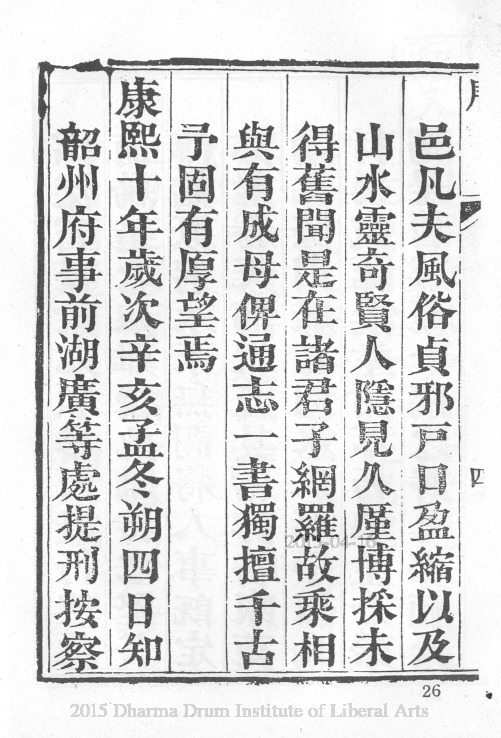 邑凡夫風俗貞邪戸口盈縮以及
山水靈奇賢人隱見久厪博採未
得舊聞是在諸君子網羅故乘相
與有成毋俾通志一書獨擅千古
予固有厚望焉
康熙十年歲次辛亥孟冬朔四日知
韶州府事前湖廣等處提刑按察
四
26
2015 Dharma Drum Institute of Liberal Arts